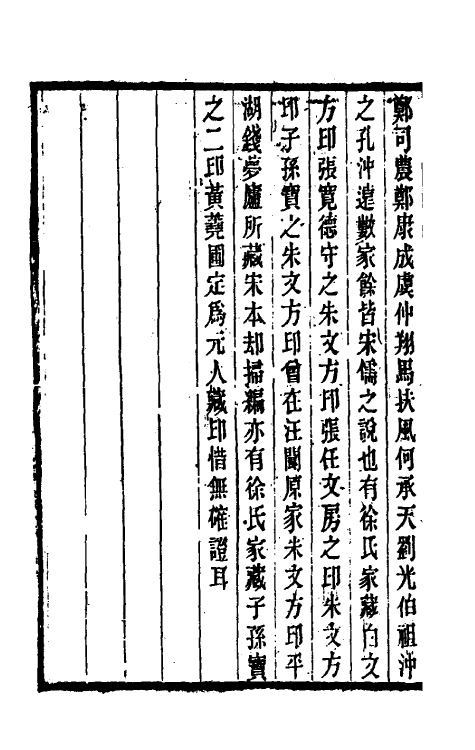 鄭司農鄭康成虞仲翔馬扶風何承天劉光伯祖沖
之孔沖遠數家餘皆宋儒之說也有徐氏家藏白文
方印張寬德守之朱文方印張任文房之印朱文方
印子孫寶之朱文方印曾在汪閬原家朱文方印平
湖錢夢廬所藏宋本却掃編亦有徐氏家藏子孫寶
之二印黃蕘圃定爲元人藏印惜無確證耳